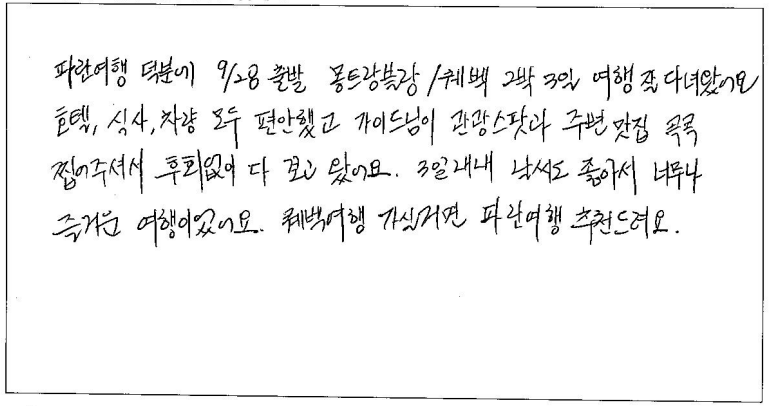 파란여행 덕분에 9/28 출발 몽트랑블랑/퀘백 2박 3일 여행 잘 다녀왔어요
호텔, 식사, 차량 모두 편안했고 가이드님이 관광스팟과 주변 맛집 콕콕
찝어주셔서 후회없이 다 보고 왔어요. 3일내내 날씨도 좋아서 너무나
즐거운 여행이었어요. 퀘백여행 가실거면 파란여행 추천드려요.